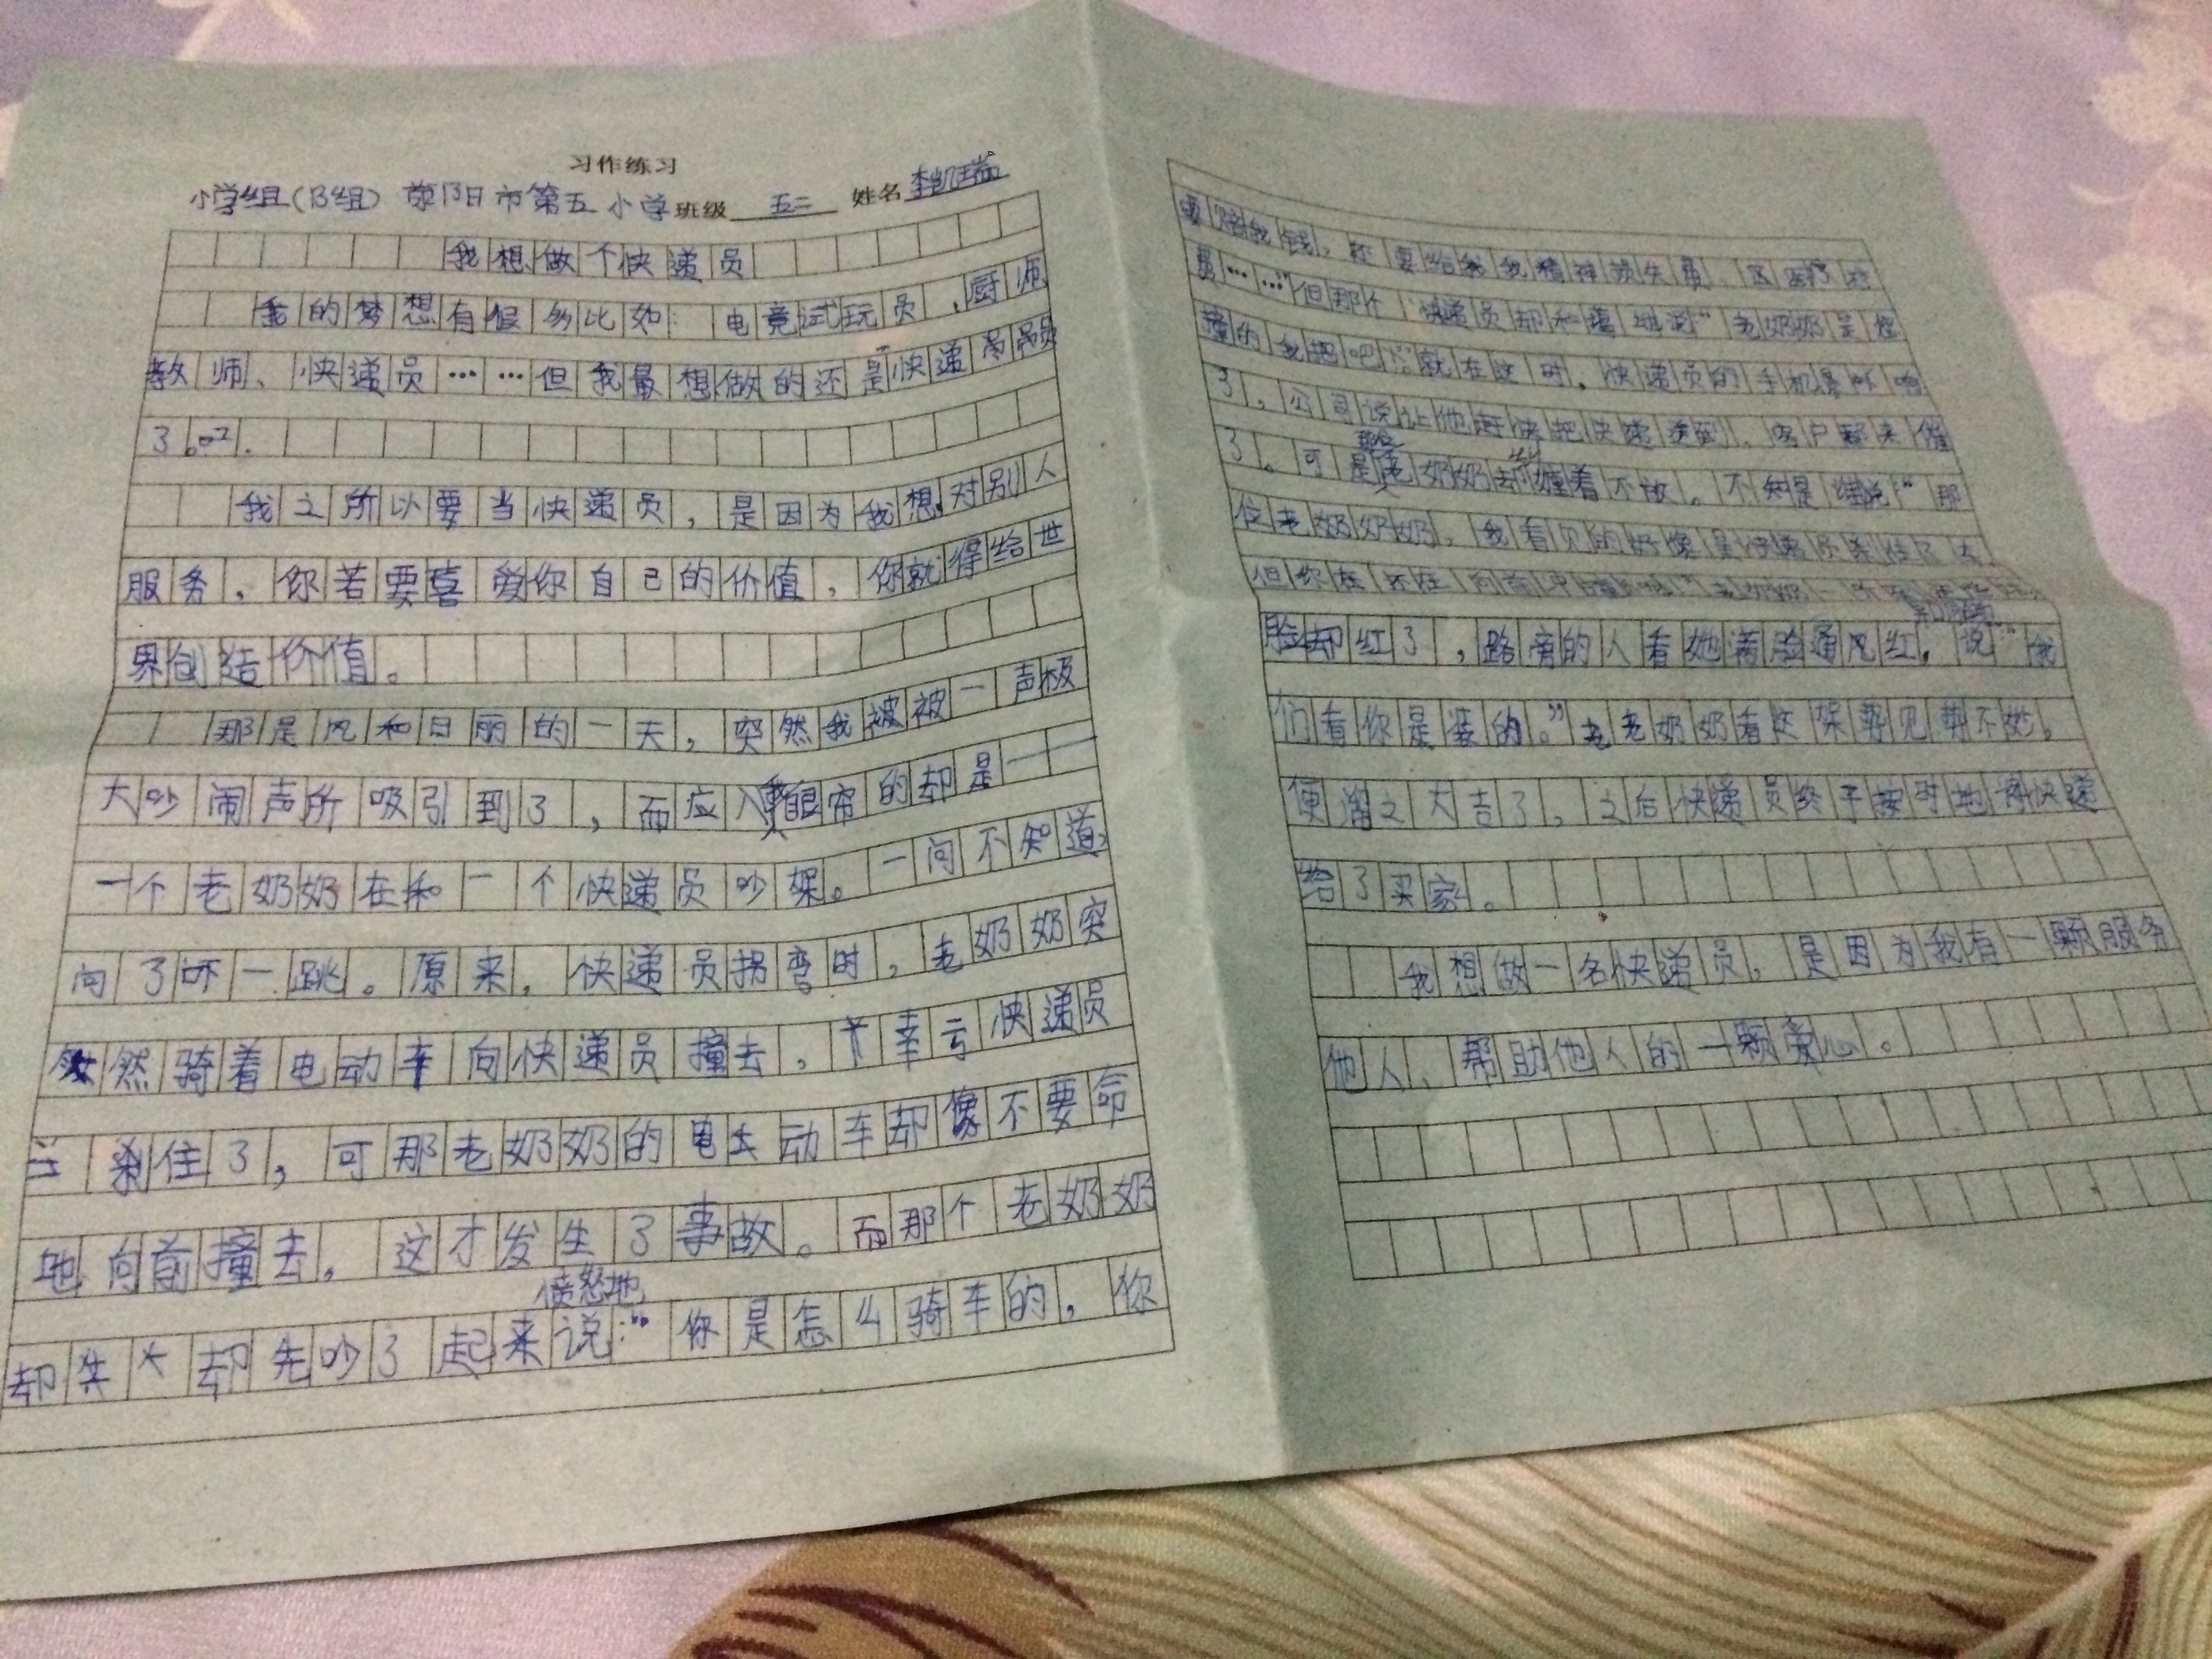 习作练习
小学组(B组) 荥阳市第五小学班级 五二 姓名 李凯瑞
我想做个快递员
我的梦想有很多比如：电竞试玩员，厨师
教师、快递员……但我最想做的还是快递员
了。
我之所以要当快递员，是因为我想对别人
服务，你若要喜爱你自己的价值，你就得给世
界创造价值。
那是风和日丽的一天，突然我被被一声极
大吵闹声所吸引到了，而应入我眼帘的却是一
一个老奶奶在和一个快递员吵架。一问不知道，
问了吓一跳。原来，快递员拐弯时，老奶奶突
然骑着电动车向快递员撞去，幸亏快递员
刹住了，可那老奶奶的电动车却像不要命
地向前撞去，这才发生了事故。而那个老奶奶
愤怒地
却先吵了起来说：“你是怎么骑车的，你
要赔我钱，还要给我我精神损失费、医疗
费……”但那个快递员却和蔼地说“老奶奶是您
撞的我把吧！”就在这时，快递员的手机 响
了，公司说让他赶快把快递送到，客户都来催
了。可是老奶奶却缠着不放。不知是谁说“那
位老奶奶奶，我看见的好像是快递员刹住了车
但你在还在向前冲
脸却红了，路旁的人看她满脸通风红，说“我
们看你是装的。”老老奶奶看这架势见势不妙。
便溜之大吉了，之后快递员终于按时地将快递
给了买家。
我想做一名快递员，是因为我有一颗服务
他人、帮助他人的一颗爱心。